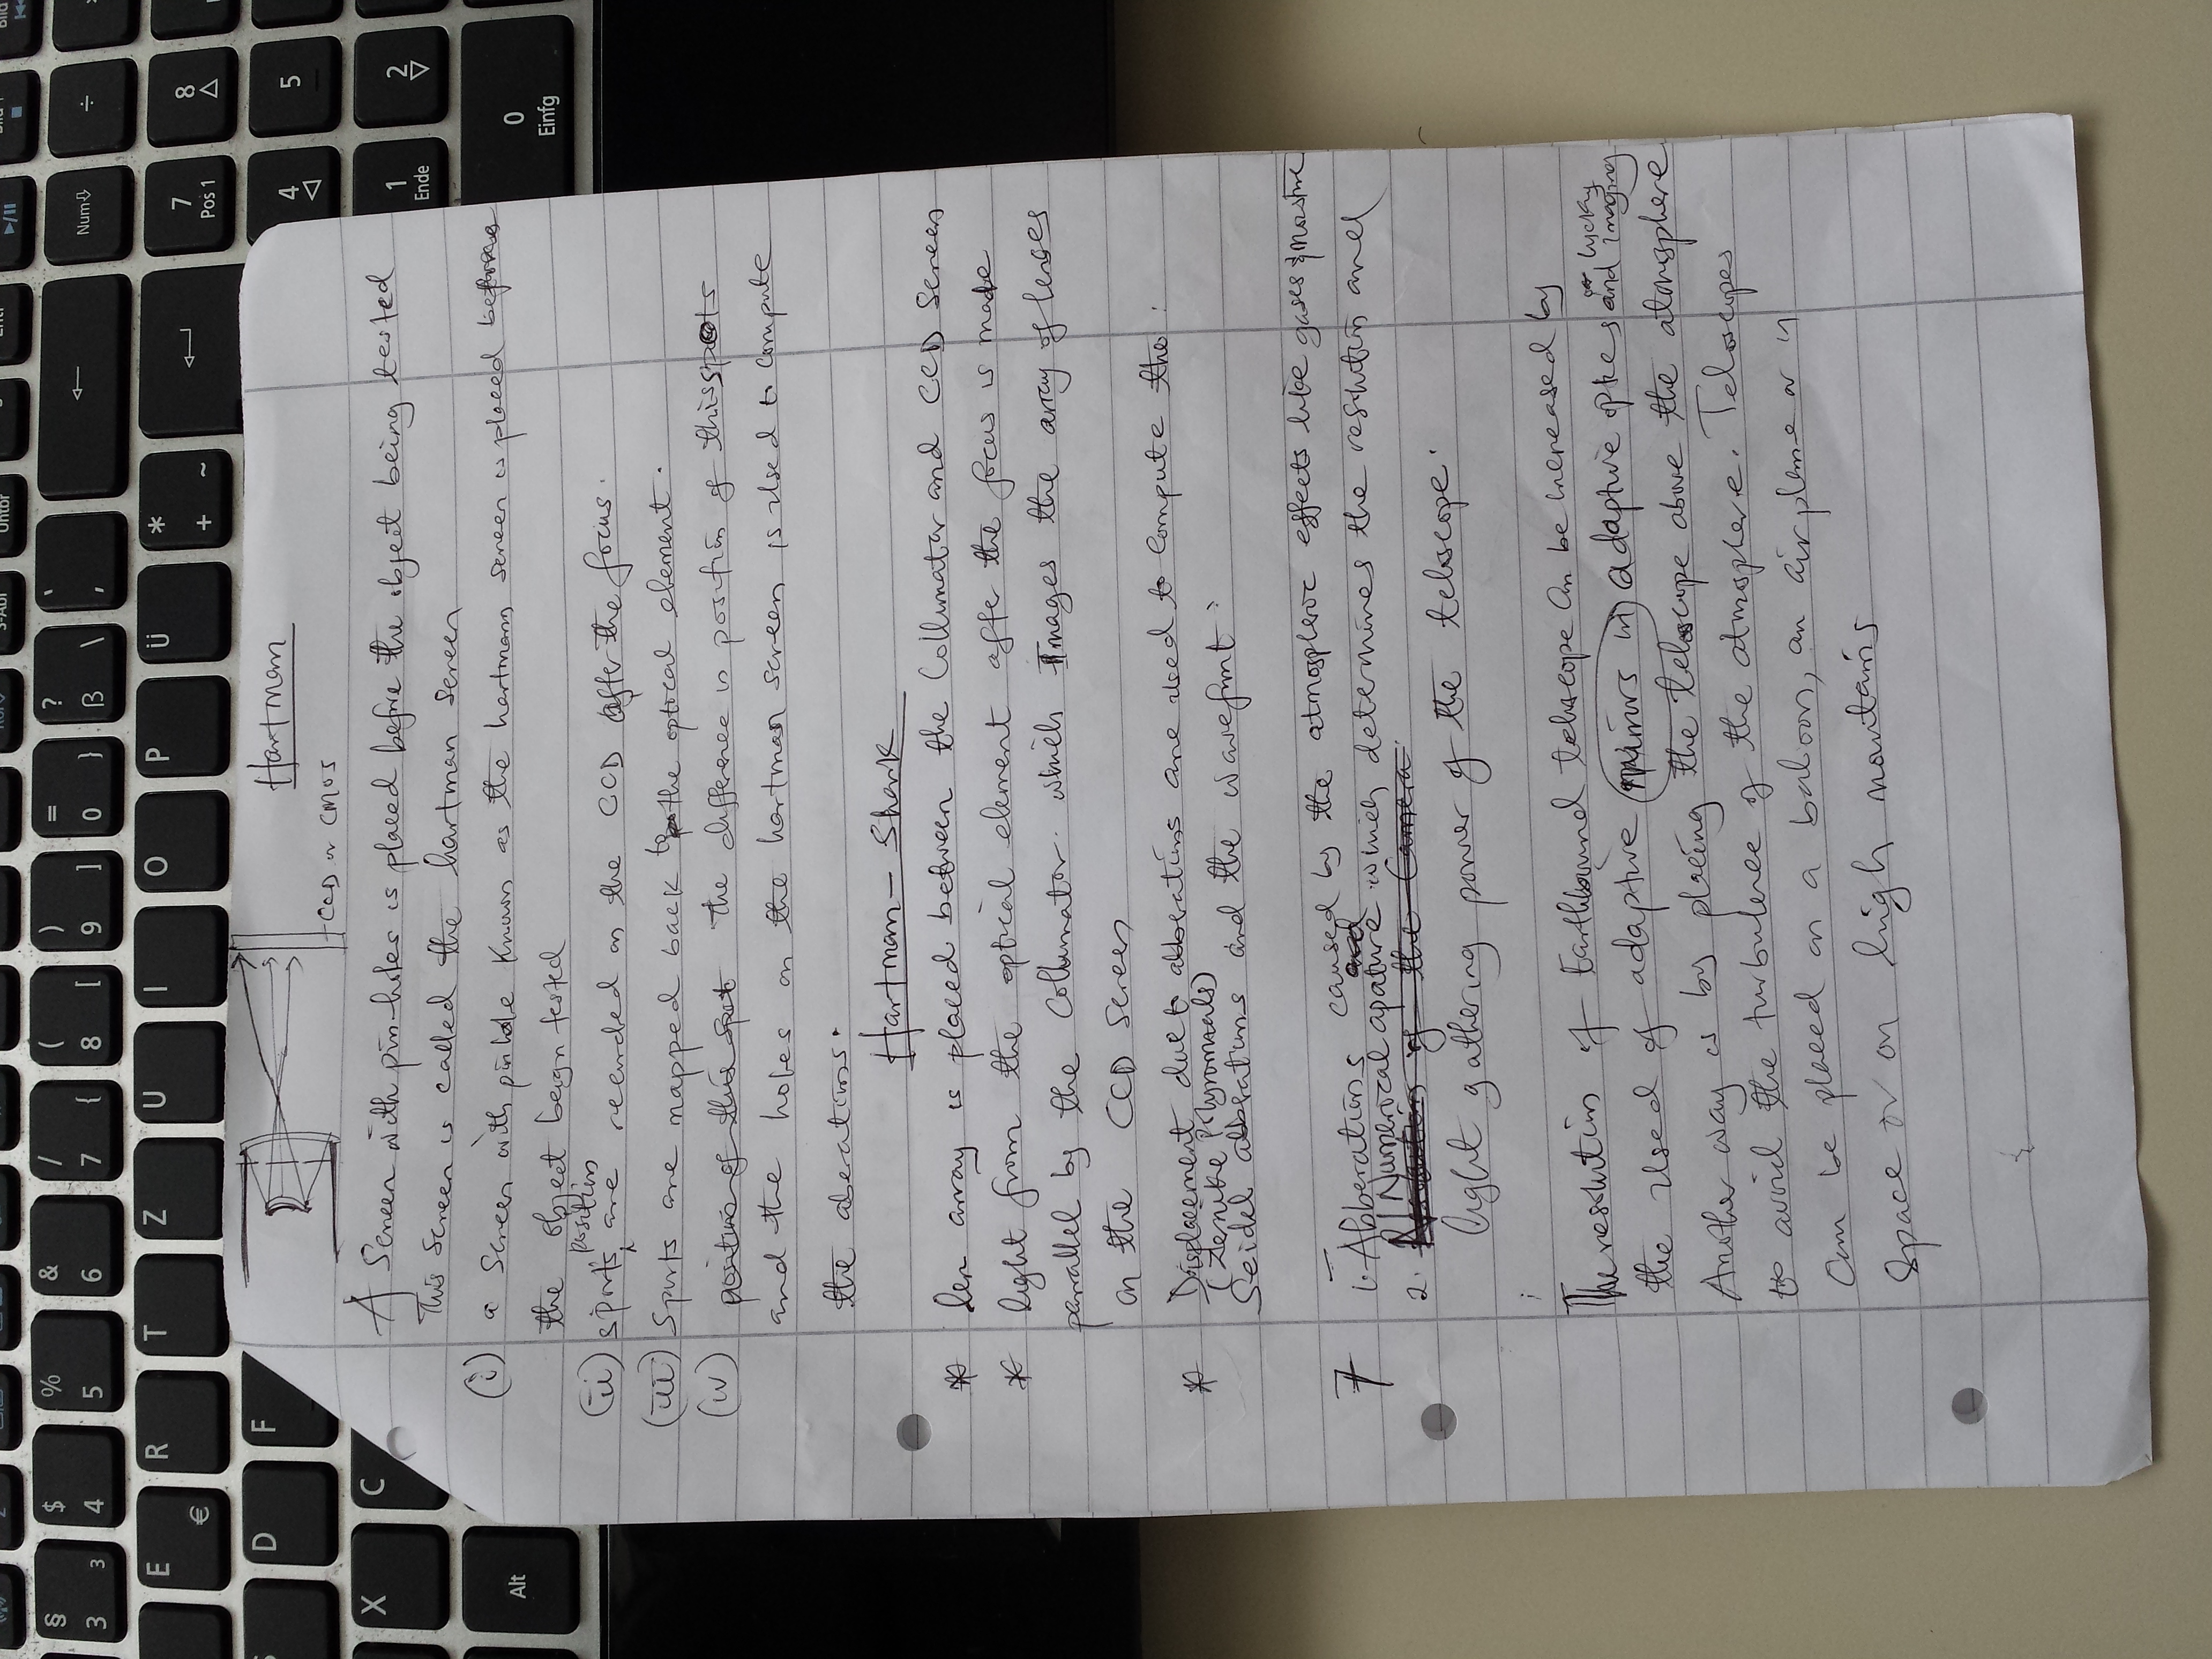 Hartman
CCD or CMOS
A Screen with pin-holes is placed before the object being tested
This screen is called the hartman screen
(i) a Screen with pinhole known as the hartman screen is placed before
the object beign tested
position
(ii) spots are recorded on the CCD after the focus.
(iii) Spots are mapped back to the optical element.
(iv) position of this spot the difference is position of this spots
and the holes on the hartman screen is used to compute
the aberations.
Hartman - Shark
* len array is placed between the Collumator and CCD Screen
* light from the optical element afte the focus is made
parallel by the Collumator. which Images the array of lenses
on the CCD screen
* Displacement due to abberations are used to compute the:
(Zernike polynomials)
Seidel abberations and the wavefront.
7 1. Abberations caused by the atmospheric effects like gases & moisture
and
2. Numerical aperture which determines the resolution and
light gathering power of the telescope.
The resolution of Earthbound telescope can be increased by
or lucky
the used of adaptive (mirrors in) adaptive optics and imaging
Another way is by placing the telescope above the atmosphere
to avoid the turbulence of the atmosphere. Telescopes
Can be placed on a baloon, an airplane or in
Space or on high mountains
8 7 5 4 2 1 0
Pos 1
Ende
Einfg
Num
Q W E R T Z U I O P Ü
D F X C
Alt